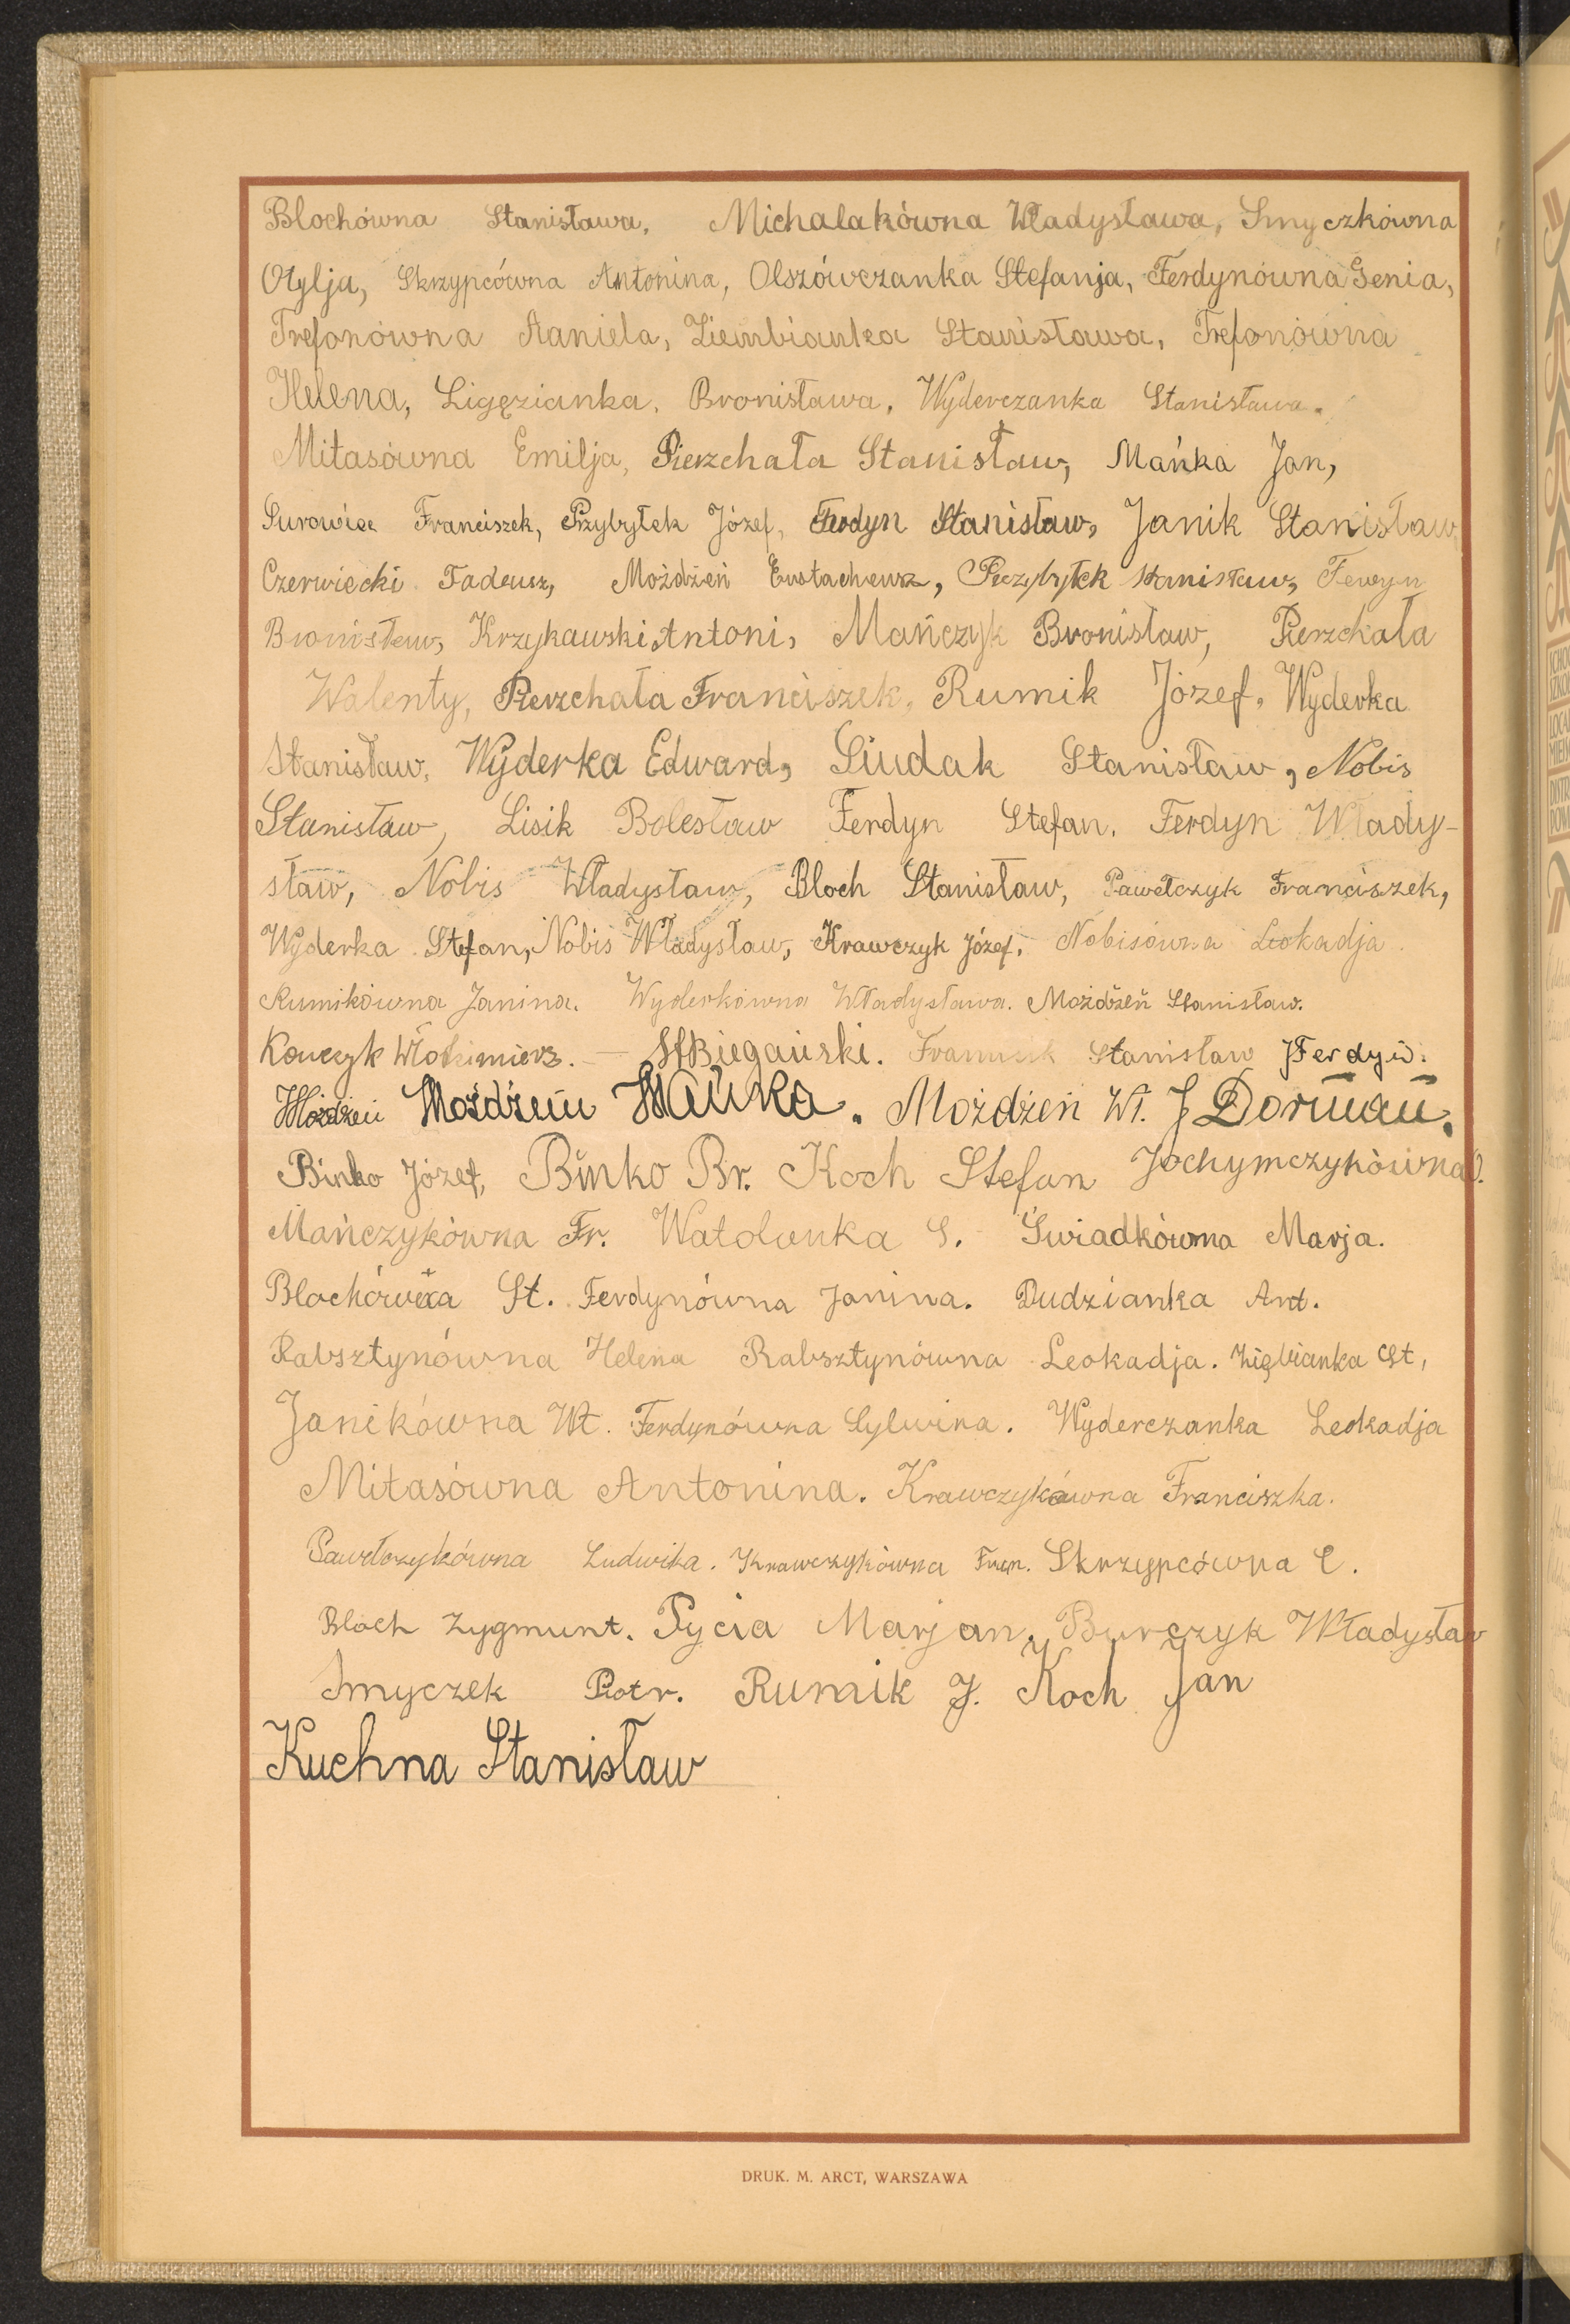 Blochówna Stanisława, Michalakówna Władysława, Smyczkówna
Otylja, Skrzypcówna Antonina, Olszówczanka Stefanja, Ferdynówna Genia,
Trefonówna Aaniela, Ziembianka Stanisława, Trefonówna
Helena, Ligęzianka, Bronisława, Wyderczanka Stanisława.
Mitasówna Emilja, Pierzchała Stanisław, Mańka Jan,
Surowiec Franciszek, Przybyłek Józef, Ferdyn Stanisław, Janik Stanisław,
Czerwiecki Tadeusz, Możdżeń Przybyłek Stanisław,
Bronisław, Krzykawski Antoni, Mańczyk Bronisław, Pierzchała
Walenty, Pierzchała Franciszek, Rumik Józef, Wyderka
Stanisław, Wyderka Edward, Siudak Stanisław, Nobis
Stanisław, Lisik Bolesław Ferdyn Stefan, Ferdyn Włady-
sław, Nobis Władysław, Bloch Stanisław, Pawełczyk Franciszek,
Wyderka Stefan, Nobis Władysław, Krawczyk Józef, Nobisówna Leokadja.
Rumikówna Janina. Wyderkówna Władysława. Możdżeń Stanisław.
Stanisław J Ferdyn.
Możdżeń Możdżeń Mańka. Możdżeń Wł. J Dorman.
Binko Józef, Binko Br. Koch Stefan Jochymczykówna
Mańczykówna Fr. Watolunka S. Świadkówna Marja.
Blochówna St. Ferdynówna Janina. Dudzianka Ant.
Rabsztynówna Helena Rabsztynówna Leokadja. Ziębianka St,
Janikówna Wł. Ferdynówna Sylwina. Wyderczanka Leokadja
Mitasówna Antonina. Krawczykówna Franciszka.
Pawełczykówna Ludwika. Krawczykówna Fran. Skrzypcówna C.
Bloch Zygmunt. Pycia Marjan, Burczyk Władysław
Smyczek Piotr. Rumik J. Koch Jan
Kuchna Stanisław
DRUK. M. ARCT, WARSZAWA